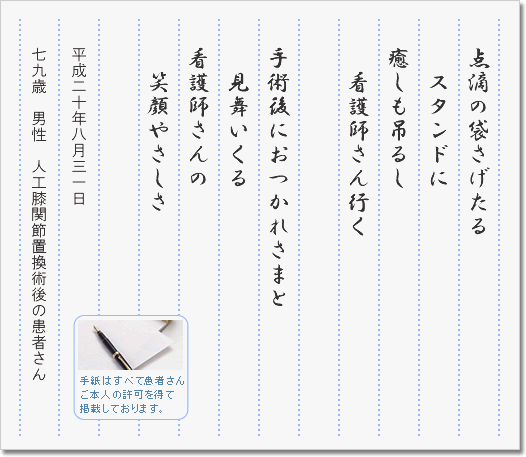 点滴の袋さげたる
スタンドに
癒しも吊るし
看護師さん行く
手術後におつかれさまと
見舞いくる
看護師さんの
笑顔やさしさ
平成二十年八月三一日
七九歳　男性　人工膝関節置換術後の患者さん
手紙はすべて患者さん
ご本人の許可を得て
掲載しております。